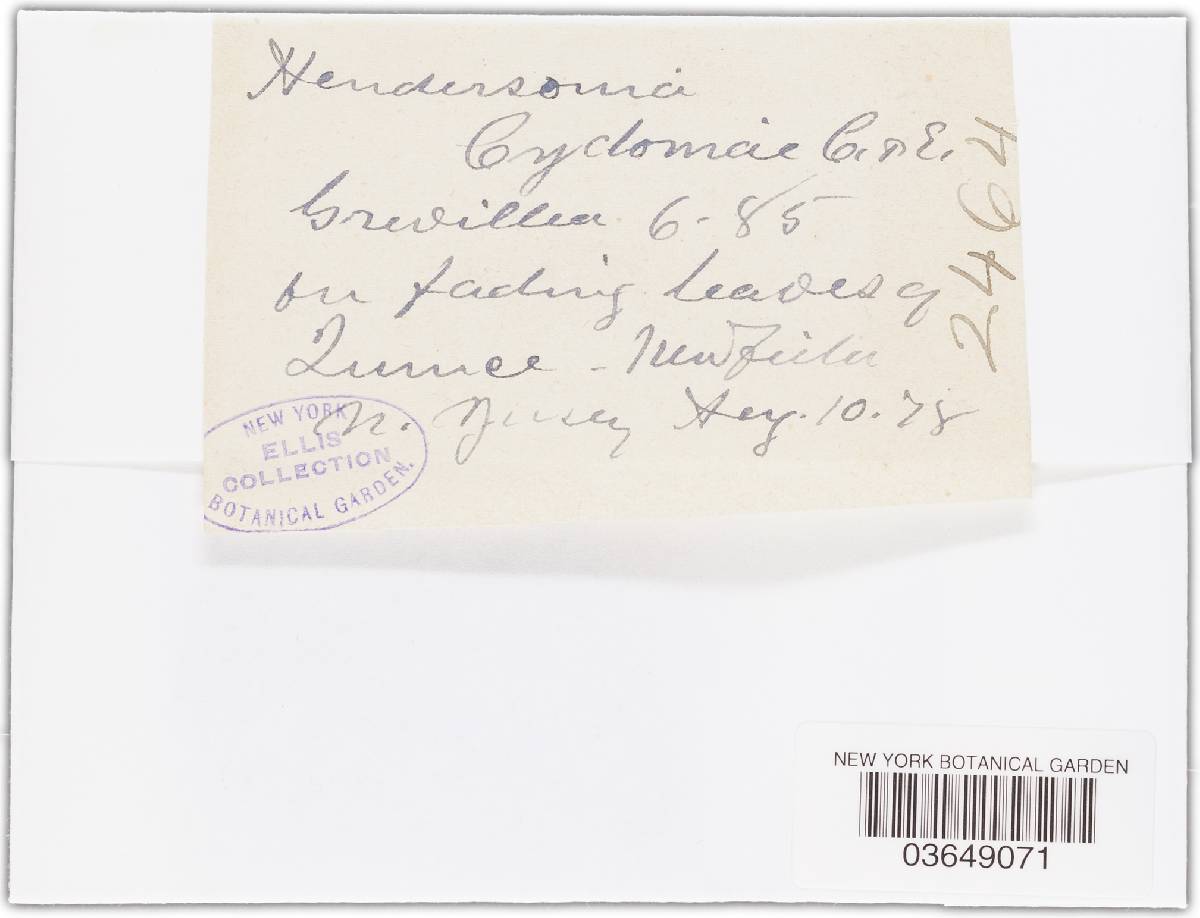 Hendersonia
Cydoniae C. & E.
Grevillea 6-85
on fading leaves of
Quince - Newfield
N. Jersey Aug. 10. 78
2464
NEW YORK
ELLIS
COLLECTION
BOTANICAL GARDEN.
NEW YORK BOTANICAL GARDEN
03649071